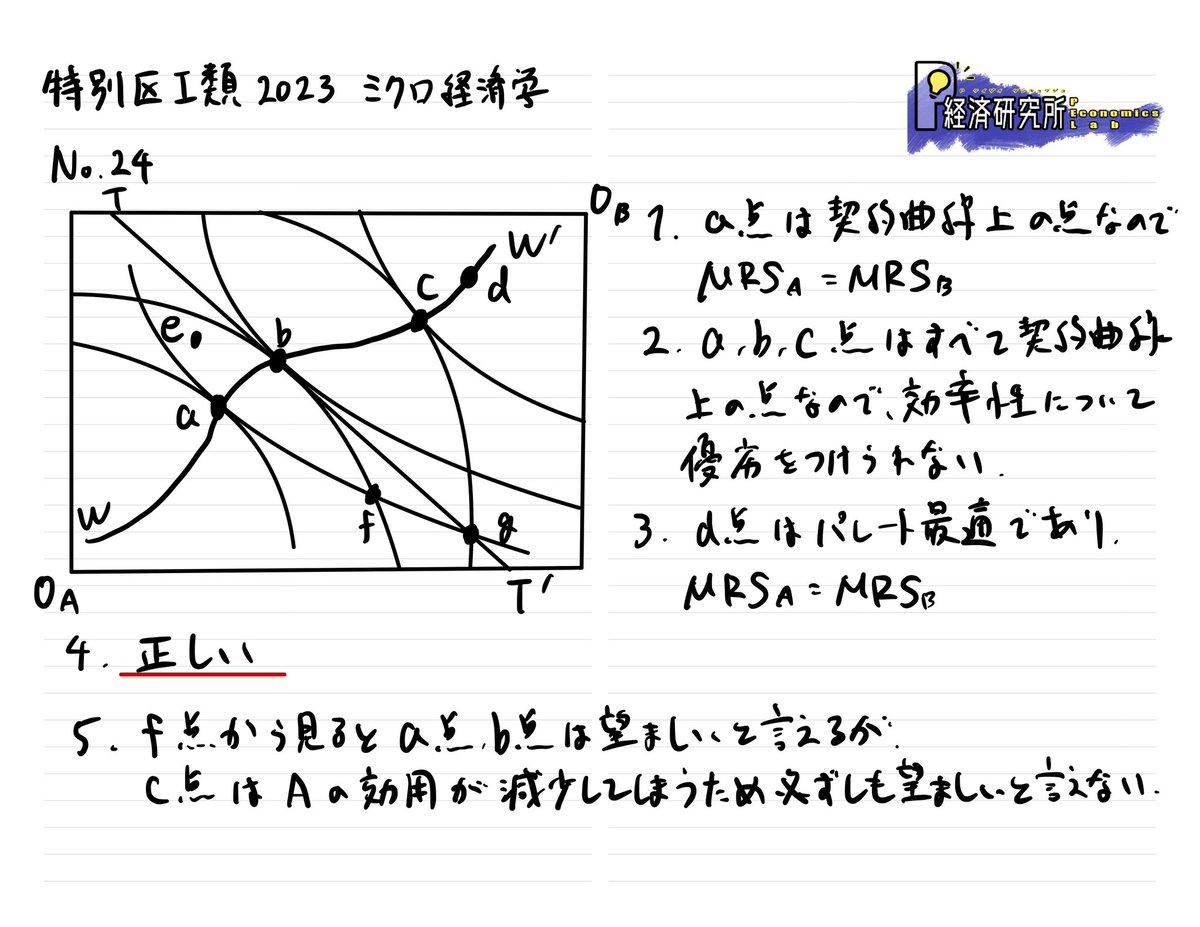 特別区Ⅰ類 2023 ミクロ経済学
P 経済研究所
Economics
Lab
No.24
T
OB
W'
c
d
e
b
a
W
f
g
OA
T'
1. a点は契約曲線上の点なので
MRSA = MRSB
2. a, b, c点はすべて契約曲線
上の点なので、効率性について
優劣をつけられない.
3. d点はパレート最適であり.
MRSA = MRSB
4. 正しい
5. f点から見るとa点, b点は望ましいと言えるが.
c点はAの効用が減少してしまうため必ずしも望ましいと言えない.